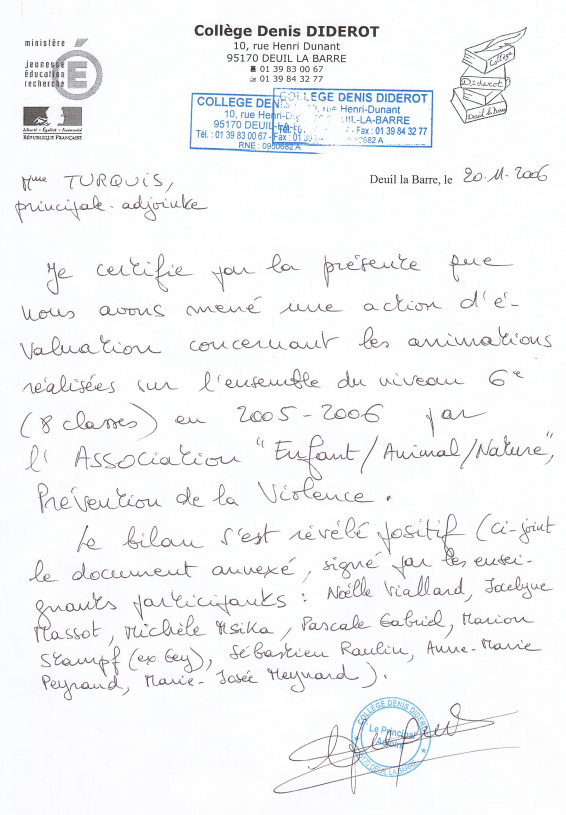 Collège Denis DIDEROT
10, rue Henri Dunant
95170 DEUIL LA BARRE
01 39 83 00 67
01 39 84 32 77
ministère
jeunesse
éducation
recherche
Liberté • Égalité • Fraternité
RÉPUBLIQUE FRANÇAISE
Collège
Diderot
Deuil la Barre
COLLEGE DENIS DIDEROT
rue Henri-Dunant
LA-BARRE
Fax : 01 39 84 32 77
COLLEGE DEN
10, rue Henri-D
95170 DEUIL-LA
Tél. : 01 39 83 00 67 - Fax : 01 39
RNE : 0950682 A
Mme TURQUIS,
principale-adjointe
Deuil la Barre, le 20-11-2006
Je certifie par la présente que
nous avons mené une action d'é-
valuation concernant les animations
réalisées sur l'ensemble du niveau 6e
(8 classes) en 2005-2006 par
l'Association "Enfant/Animal/Nature",
Prévention de la Violence.
Le bilan s'est révélé positif (ci-joint
le document annexé, signé par les ensei-
gnants participants : Noëlle Viallard, Jocelyne
Massot, Michèle Msika, Pascale Gabriel, Marion
Stampf (ex Gey), Sébastien Raulin, Anne-Marie
Peyraud, Marie-Josée Meynard).
COLLEGE DENIS DIDEROT
Le Principal
Adjoint
95170 DEUIL LA BARRE